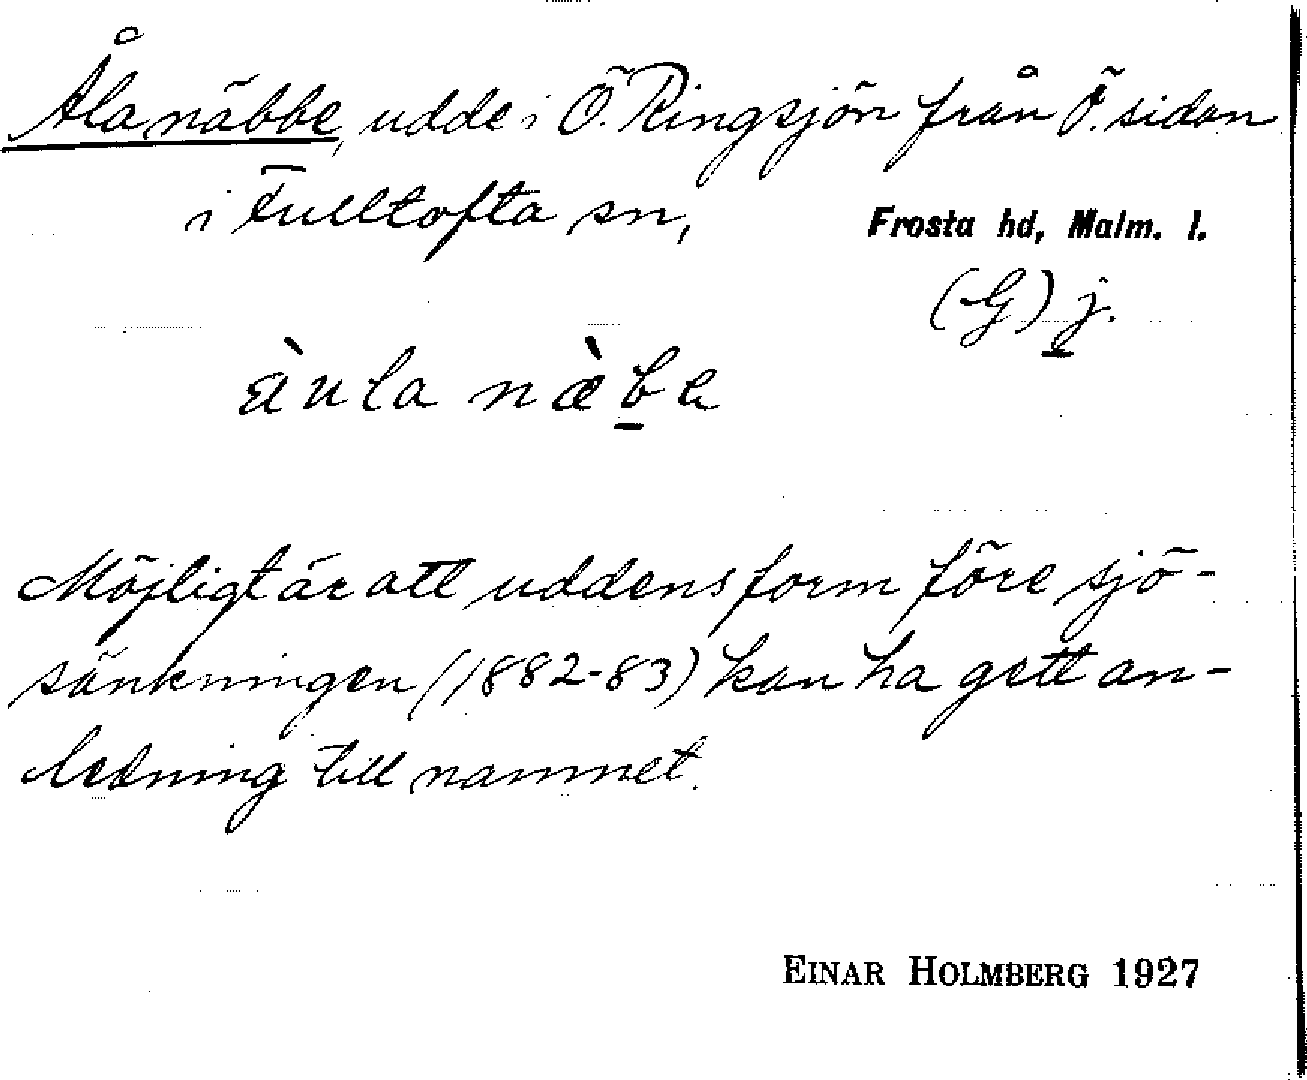 Åla näbbe, udde i Ö. Ringsjön från Ö. sidan
i Fulltofta sn,
Frosta hd, Malm. l.
(G) j.
àula næ̀be
Möjligt är att uddens form före sjö-
sänkningen (1882-83) kan ha gett an-
ledning till namnet.
EINAR HOLMBERG 1927